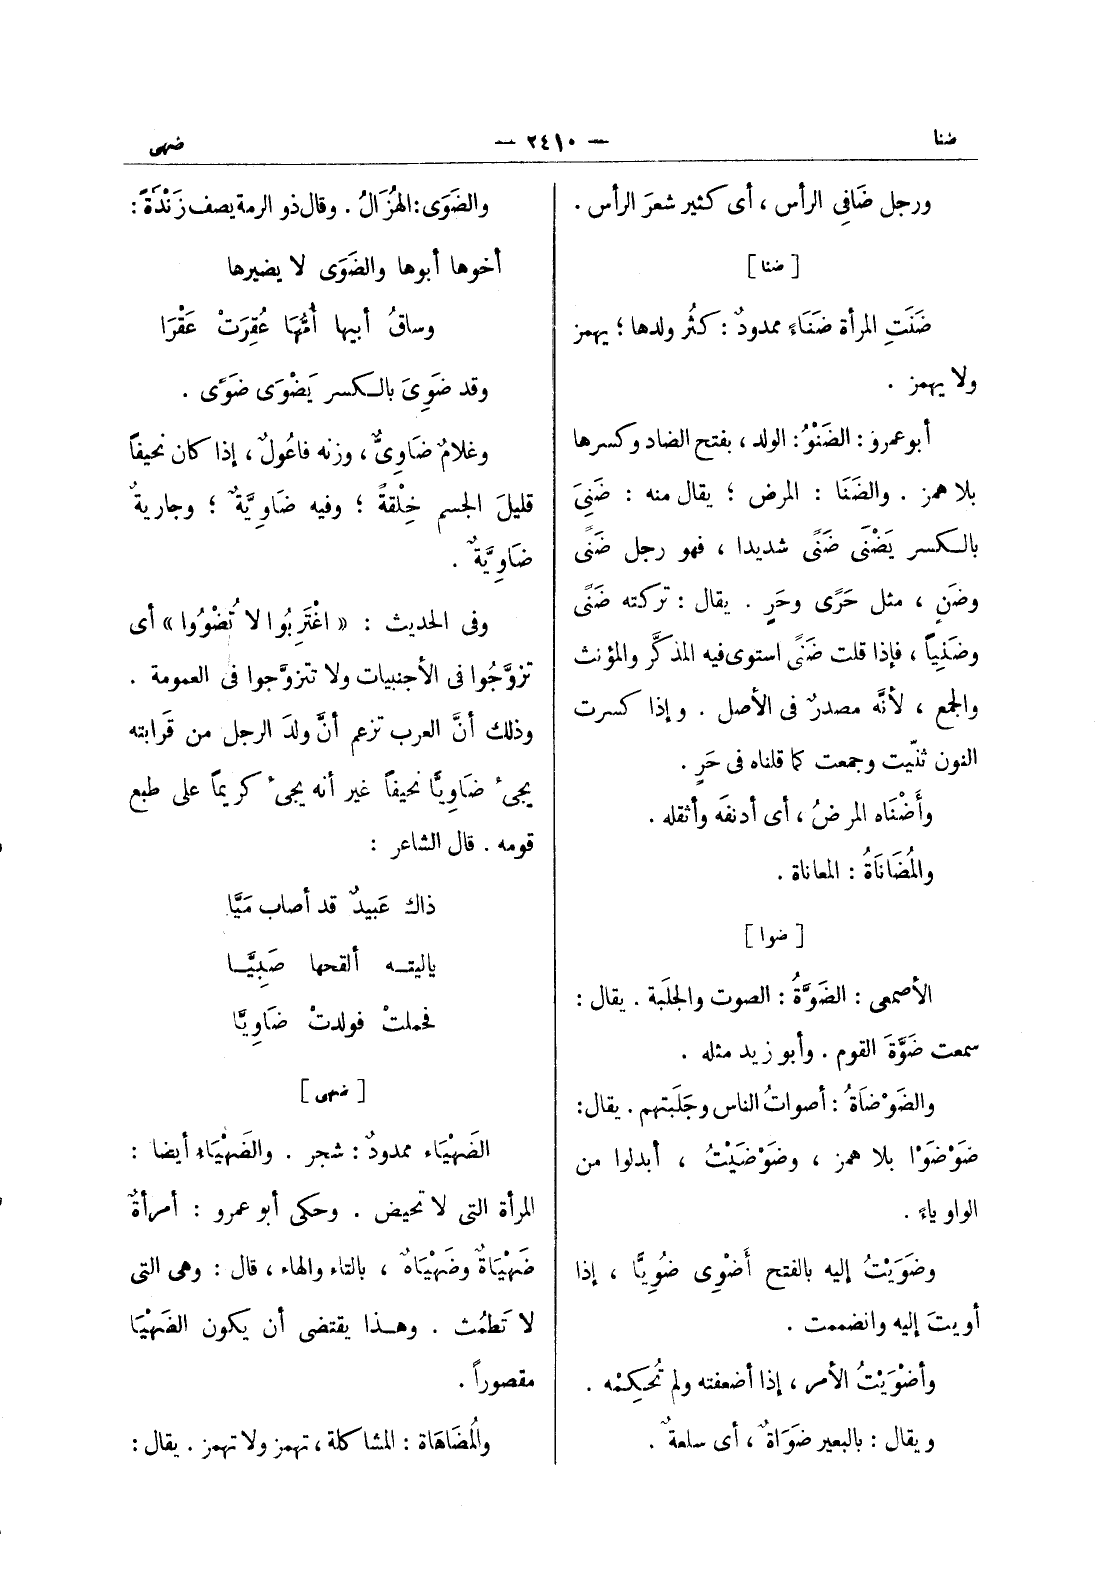 ضنا
— ٢٤١٠ —
ضهى
ورجل ضَافِى الرأس ، أى كثير شعرَ الرأس .
[ ضنا ]
ضَنَتِ المرأة ضَنَاءً ممدودٌ : كثُر ولدها ؛ يهمز
ولا يهمز .
أبو عمرو : الضَنْوُ : الولد ، بفتح الضاد وكسرها
بلا همز . والضَنَا : المرض ؛ يقال منه : ضَنِىَ
بالكسر يَضْنَى ضَنًى شديدا ، فهو رجل ضَنًى
وضَنٍ ، مثل حَرًى وحَرٍ . يقال : تركته ضَنًى
وضَنِيًا ، فإذا قلت ضَنًى استوى فيه المذكَّر والمؤنث
والجمع ، لأنَّه مصدرٌ فى الأصل . وإذا كسرت
النون ثنّيت وجمعت كما قلناه فى حَرٍ .
وأَضْنَاه المرضُ ، أى أدنفَه وأثقله .
والمُضَانَاةُ : المعاناة .
[ ضوا ]
الأصمعى : الضَوَّةُ : الصوت والجلَبة . يقال :
سمعت ضَوَّةَ القوم . وأبو زيد مثله .
والضَوْضَاةُ : أصواتُ الناس وجَلَبَتهم . يقال :
ضَوْضَوْا بلا همز ، وضَوْضَيْتُ ، أبدلوا من
الواو ياءً .
وضَوَيْتُ إليه بالفتح أَضْوِى ضُوِيًّا ، إذا
أويتَ إليه وانضممت .
وأضْوَيْتُ الأمر ، إذا أضعفته ولم تُحكِمْه .
ويقال : بالبعير ضَوَاةٌ ، أى سلعةٌ .
والضَوَى : الهزَالُ . وقال ذو الرمة يصف زَنْدَةً :
أخوها أبوها والضَوَى لا يضيرها
وساقُ أبيها أُمُّهَا عُقِرَتْ عَقْرَا
وقد ضَوِىَ بالكسر يَضْوَى ضَوًى .
وغلامٌ ضَاوِىٌّ ، وزنه فاعُولٌ ، إذا كان نحيفاً
قليلَ الجسم خِلْقةً ؛ وفيه ضَاوِيَّةٌ ؛ وجاريةٌ
ضَاوِيَّةٌ .
وفى الحديث : « اغْتَرِبُوا لا تُضْوُوا » أى
تزوَّجُوا فى الأجنبيات ولا تتزوَّجوا فى العمومة .
وذلك أنَّ العرب تزعم أنَّ ولدَ الرجل من قَرابته
يجىء ضَاوِيًّا نحيفاً غير أنه يجىء كريماً على طبع
قومه . قال الشاعر :
ذاك عَبيدٌ قد أصاب مَيَّا
ياليته ألقحها صَبِيَّا
فحملتْ فولدتْ ضَاوِيَّا
[ ضهى ]
الضَهْيَاء ممدودٌ : شجر . والضَهْيَاء أيضا :
المرأة التى لا تحيض . وحكى أبو عمرو : أمرأةٌ
ضَهْيَاةٌ وضَهْيَاهٌ ، بالتاء والهاء ، قال : وهى التى
لا تَطمُث . وهذا يقتضى أن يكون الضَهْيَا
مقصوراً .
والمُضَاهَاة : المشاكلة ، تهمز ولا تهمز . يقال :